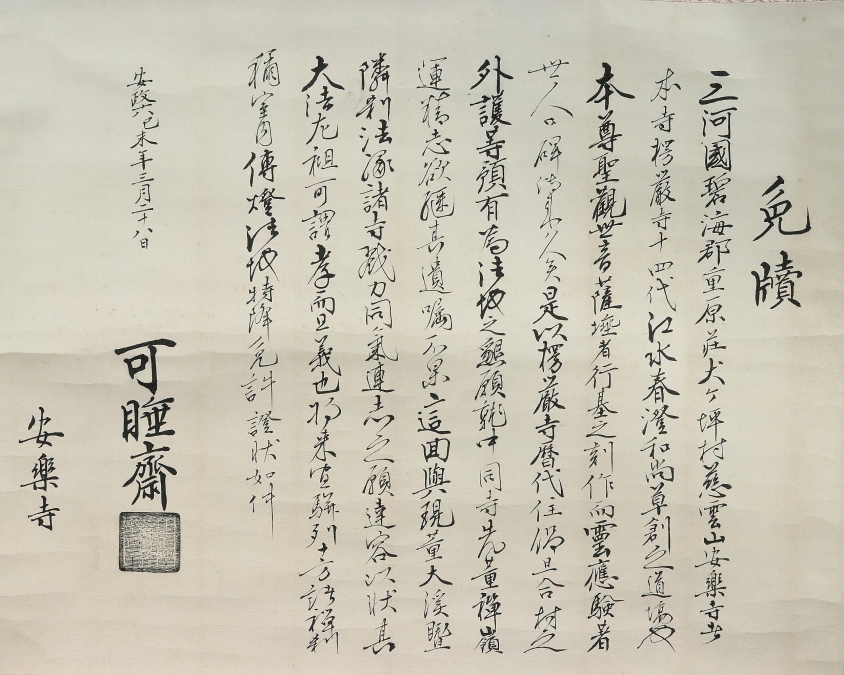 免牘
三河國碧海郡重原荘犬ヶ坪村慈雲山安樂寺者
本寺楞嚴寺十四代江水春澄和尚草創之道場也
本尊聖觀世音薩埵者行基之刻作而靈應驗者
世人口碑 是以楞嚴寺暦代住僧且合村之
外護等願有為法地之懇願就中同寺先董禪嶺
運精志欲継其遺嘱不果這回與現董大溪曁
隣刹法縁諸寺戮力同氣連志之願達容以狀其
大法尤祖可謂孝而且義也將来宜駢列十方諸禪刹
稱室內傳燈法地特降免許證狀如件
安政六己未年三月二十八日
可睡齋
安樂寺